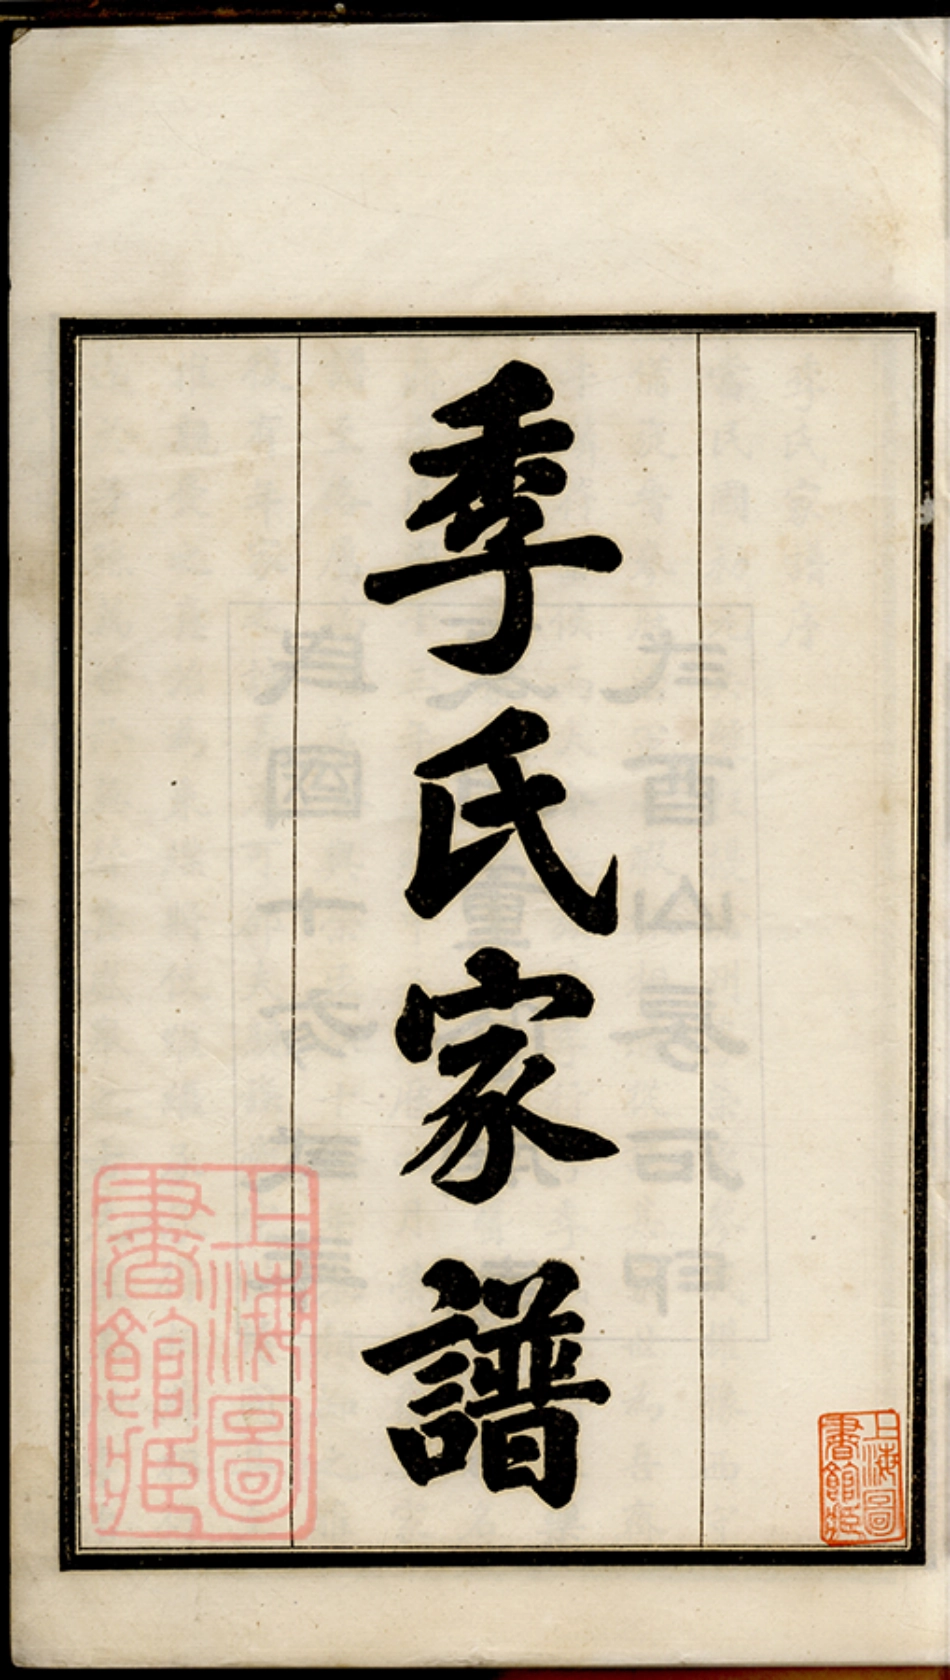 季氏家譜
上海圖書館藏
上海圖書館藏